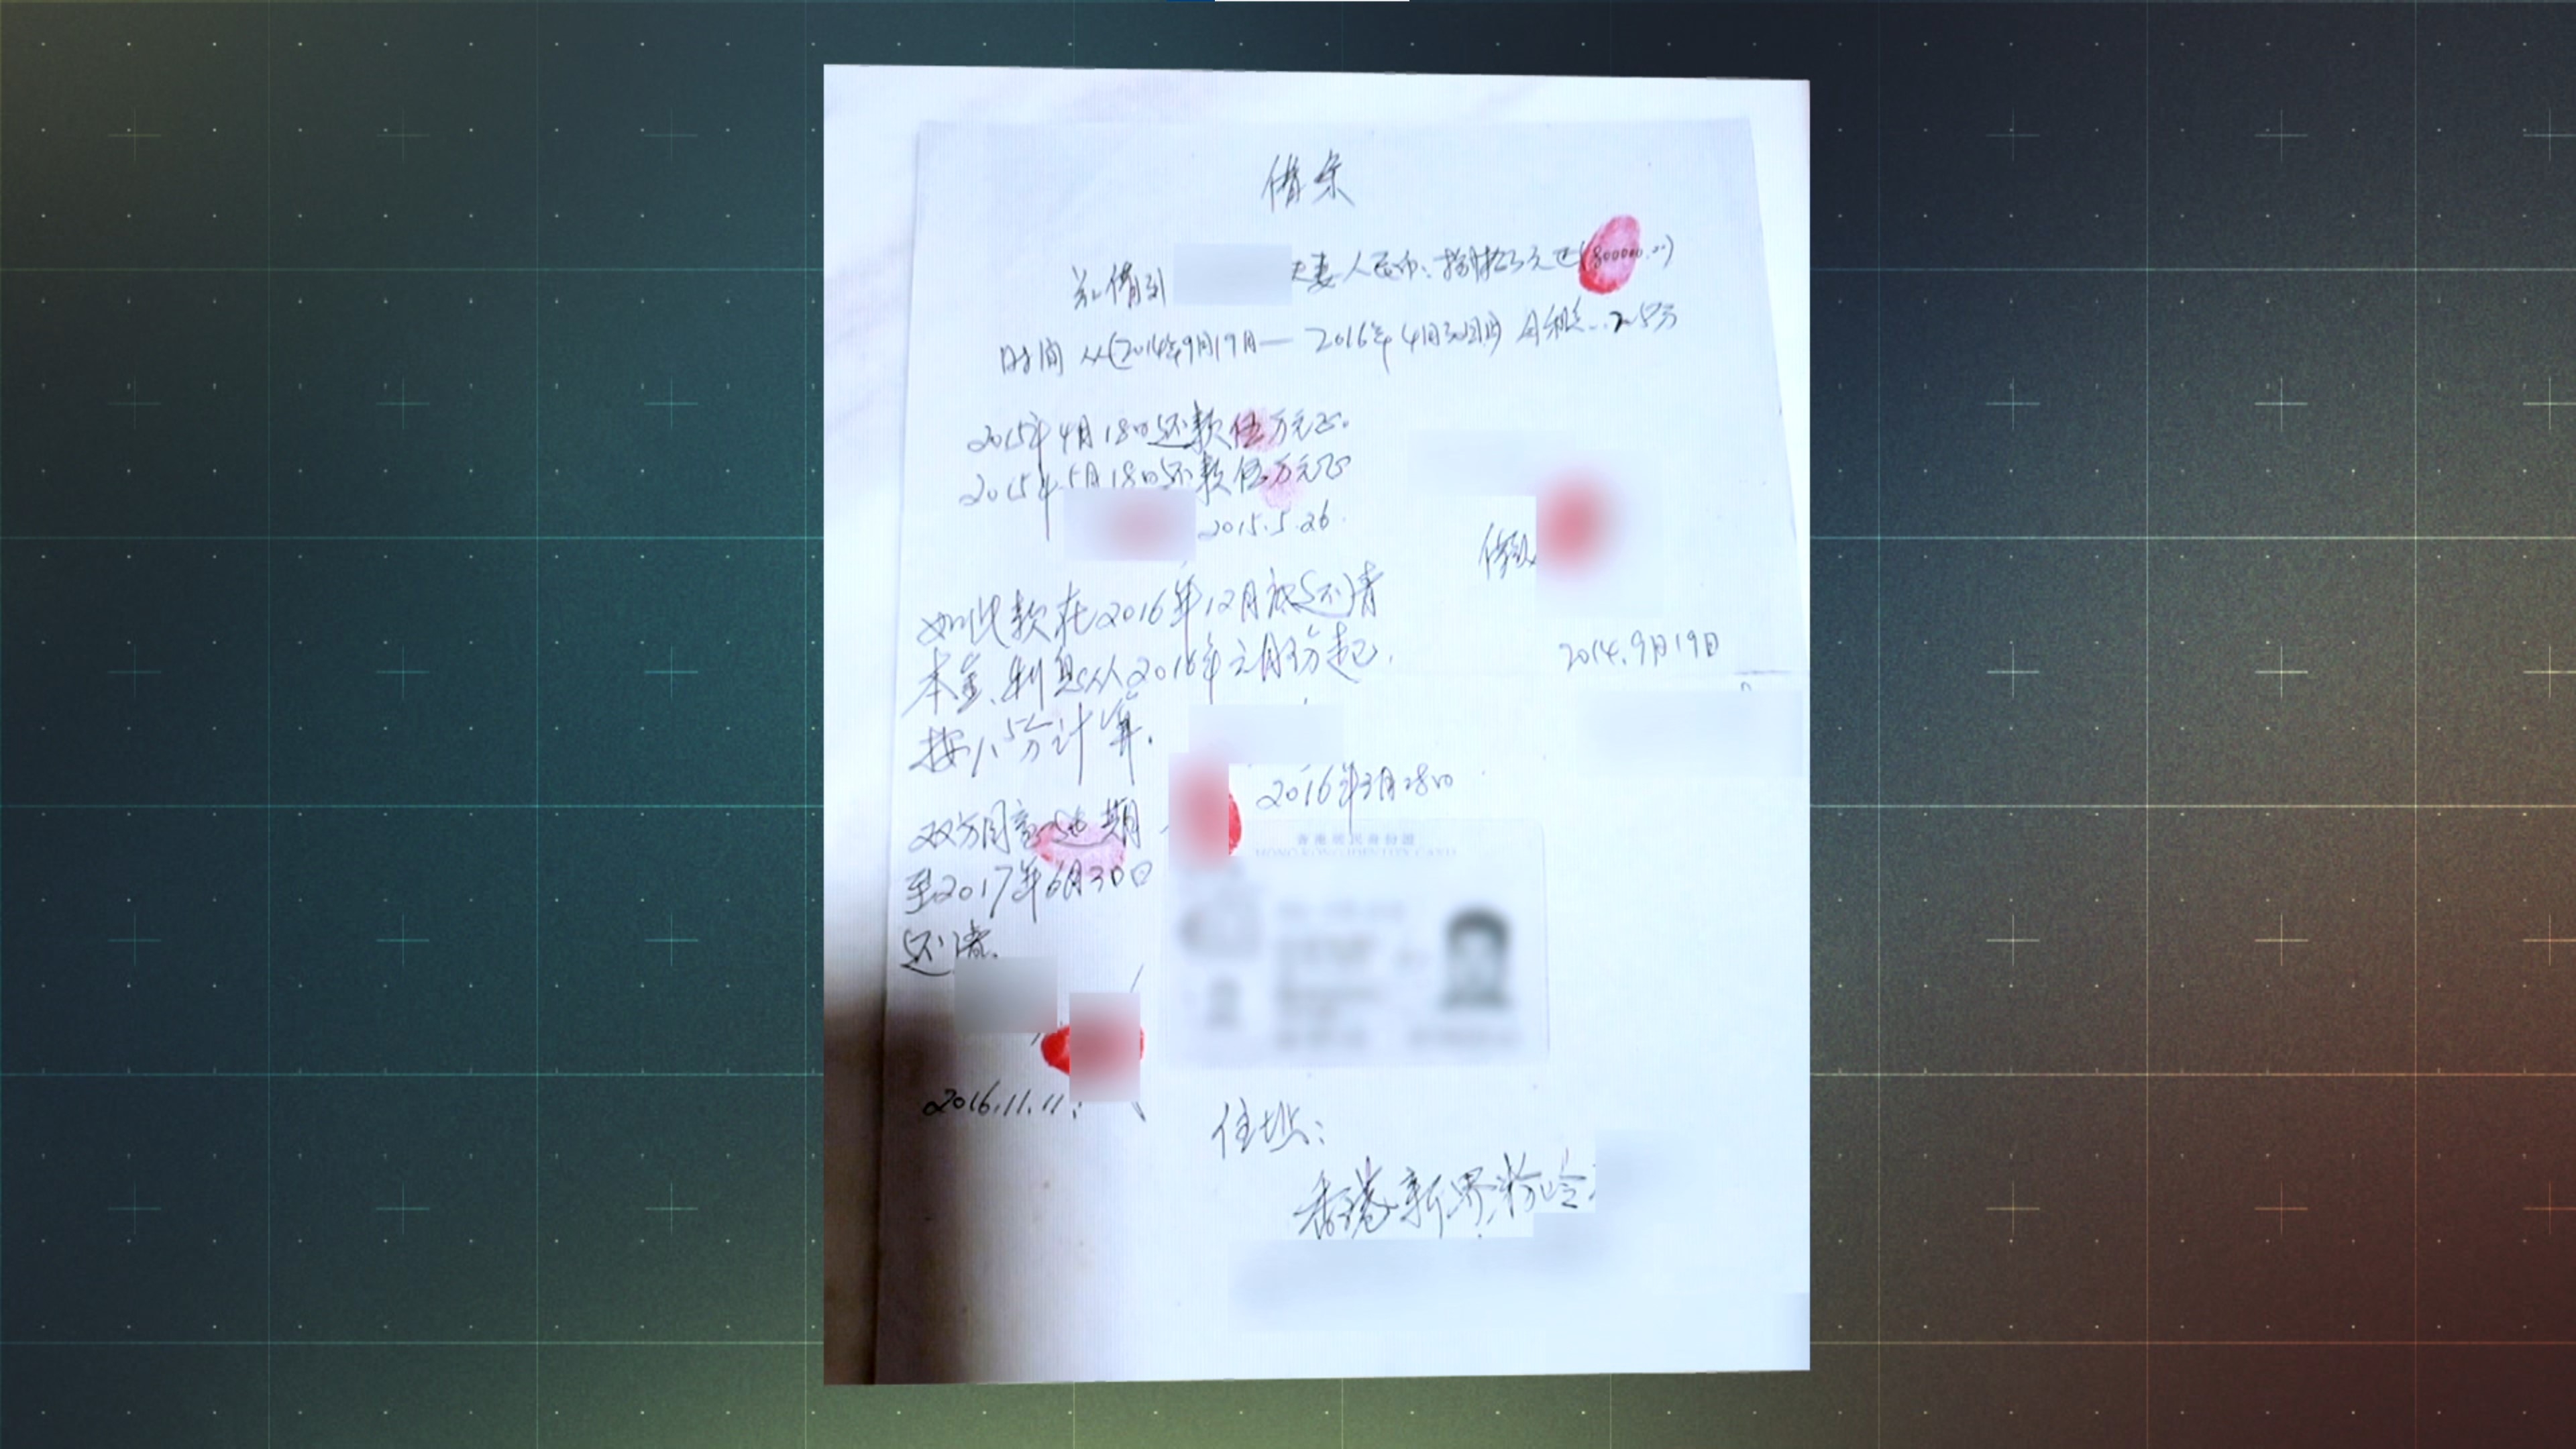 借条
兹借到
夫妻人民币:捌拾万元正(800000.00)
时间从(2014年9月19日— 2016年4月30日止) 月利息..2.5分
2015年4月18日还款伍万元正。
2015年5月18日还款伍万元正
2015.5.26.
借款
2014.9月19日
如此款在2016年12月底还清
本金、利息从2016年元月份起.
按1.5分计算.
2016年3月28日
双方同意 期
至2017年6月30日
还清.
2016.11.11.
香港居民身份證
HONG KONG IDENTITY CARD
住址:
香港新界粉岭